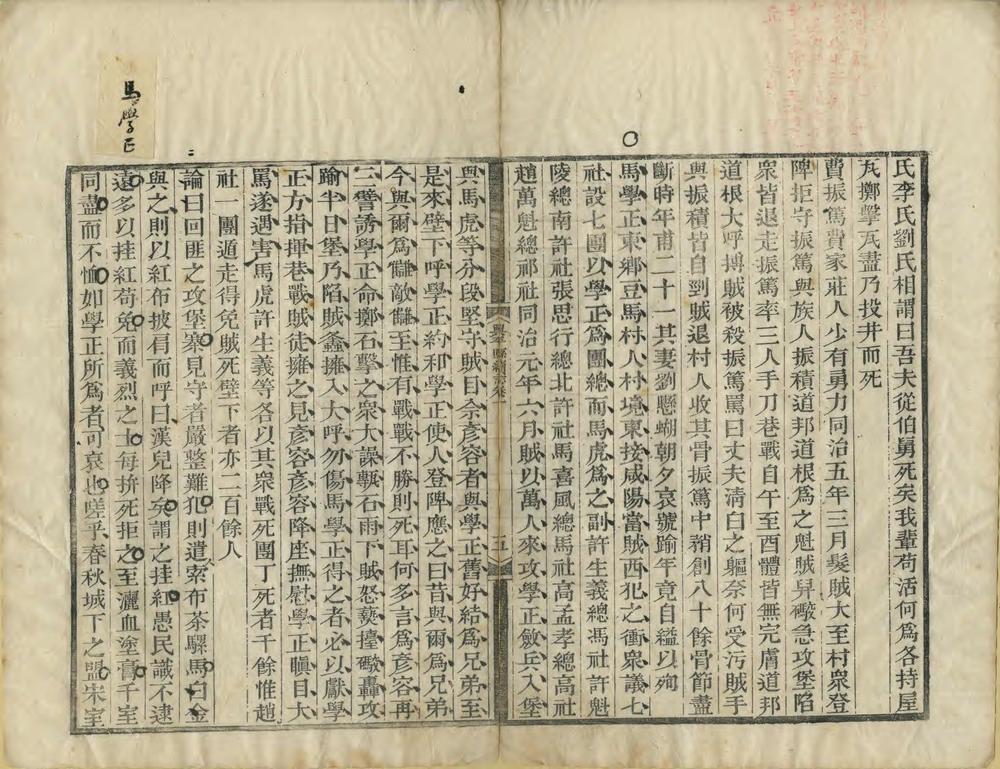 氏李氏劉氏相謂曰吾夫從伯舅死矣我輩苟活何爲各持屋
瓦擲擊瓦盡乃投井而死
費振篤費家莊人少有勇力同治五年三月髮賊大至村衆登
陴拒守振篤與族人振積道邦道根爲之魁賊舁礮急攻堡陷
衆皆退走振篤率三人手刀巷戰自午至酉體皆無完膚道邦
道根大呼搏賊被殺振篤罵曰丈夫清白之軀奈何受污賊手
與振積皆自剄賊退村人收其骨振篤中矟創八十餘骨節盡
斷時年甫二十一其妻劉懸蝴朝夕哀號踰年竟自縊以殉
馬學正東鄉豆馬村人村境東接咸陽當賊西犯之衝衆議七
社設七團以學正爲團總而馬虎爲之副許生義總馮社許魁
陵總南許社張思行總北許社馬喜風總馬社高孟孝總高社
趙萬魁總祁社同治元年六月賊以萬人來攻學正斂兵入堡
興平縣續志卷一
五
與馬虎等分段堅守賊目余彥容者與學正舊好結爲兄弟至
是來壁下呼學正約和學正使人登陴應之曰昔與爾爲兄弟
今與爾爲讎敵讎至惟有戰戰不勝則死耳何多言爲彥容再
三譬誘學正命擲石擊之衆大譟輒石雨下賊怒蓺擡礮轟攻
踰半日堡乃陷賊蠭擁入大呼勿傷馬學正得之者必以獻學
正方指揮巷戰賊徒擁之見彥容彥容降座撫慰學正瞋目大
罵遂遇害馬虎許生義等各以其衆戰死團丁死者千餘惟趙
社一團遁走得免賊死壁下者亦二百餘人
論曰回匪之攻堡寨見守者嚴整難犯則遣索布茶騾馬白金
與之則以紅布披肩而呼曰漢兒降矣謂之挂紅愚民識不逮
遠多以挂紅苟免而義烈之士每拚死拒之至灑血塗膏千室
同盡而不恤如學正所爲者可哀也嗟乎春秋城下之盟宋室
馬學正